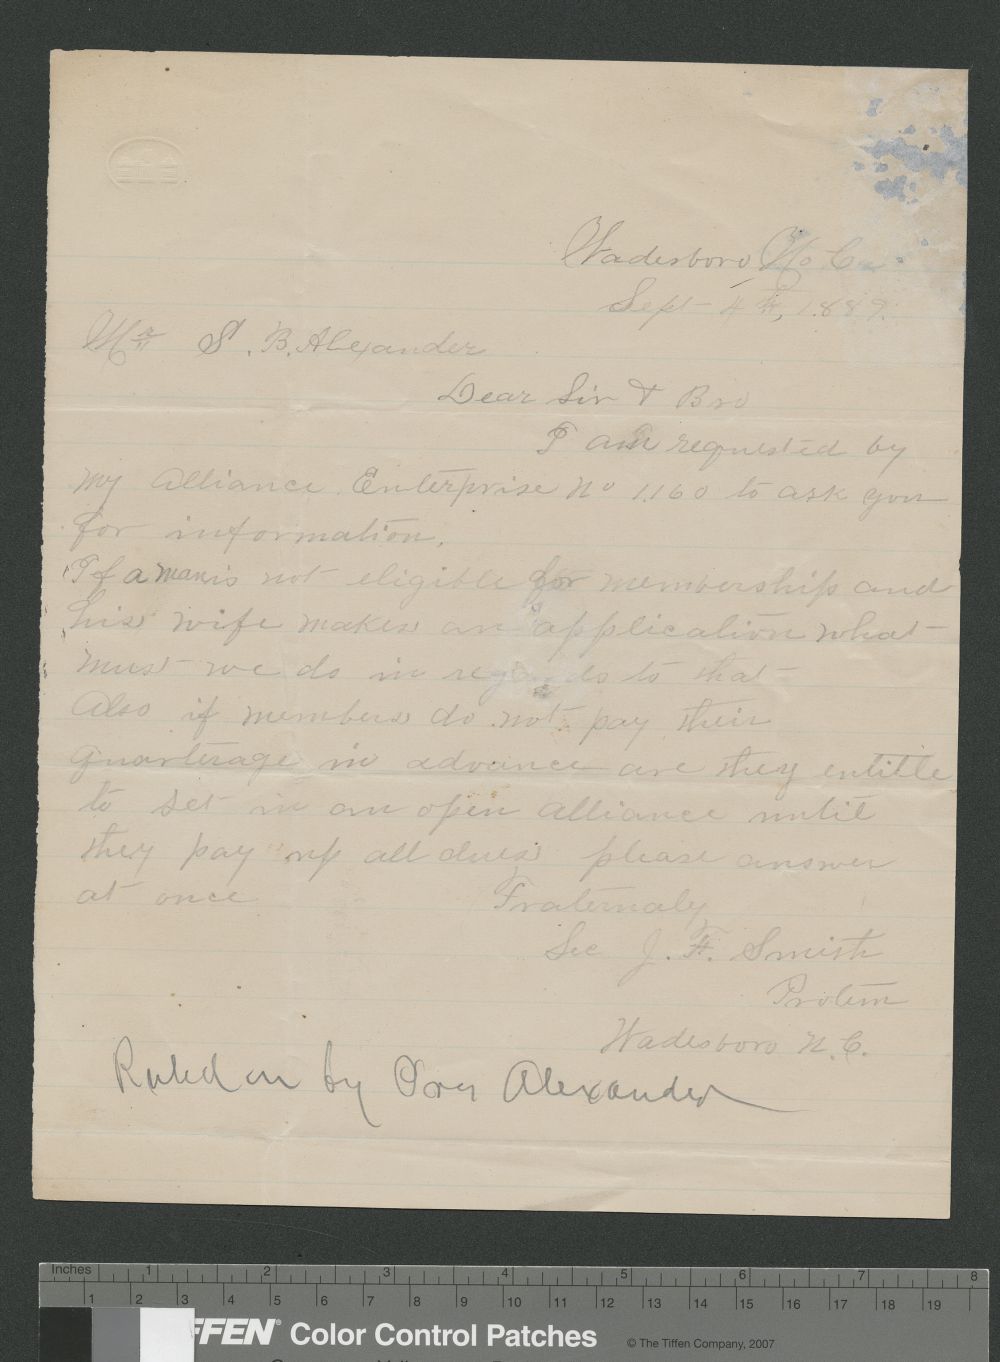 Wadesboro, No C.
Sept 4th, 1889.
Mr S. B. Alexander
Dear Sir & Bro
I am requested by
my Alliance Enterprise No 1160 to ask you
for information.
If a man is not eligible for membership and
his wife makes an application what
must we do in regards to that
Also if members do not pay their
quarterage in advance are they entitle
to set in an open Alliance until
they pay up all dues please answer
at once
Fraternaly
Sec J. F. Smith
Protem
Wadesboro N. C.
Ruled on by Pres Alexander
Inches 1 2 3 4 5 6 7 8
1 2 3 4 5 6 7 8 9 10 11 12 13 14 15 16 17 18 19
FFEN® Color Control Patches © The Tiffen Company, 2007